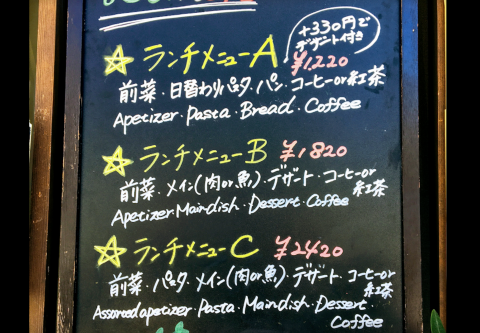 +330円で
デザート付き
ランチメニューA ¥1,220
前菜・日替わりパスタ・パン・コーヒーor紅茶
Apetizer・Pasta・Bread・Coffee
ランチメニューB ¥1820
前菜・メイン(肉or魚)・デザート・コーヒーor
紅茶
Apetizer・Maindish・Dessert・Coffee
ランチメニューC ¥2420
前菜・パスタ・メイン(肉or魚)・デザート・コーヒーor
紅茶
Assorted apetizer・Pasta・Maindish・Dessert・
Coffee